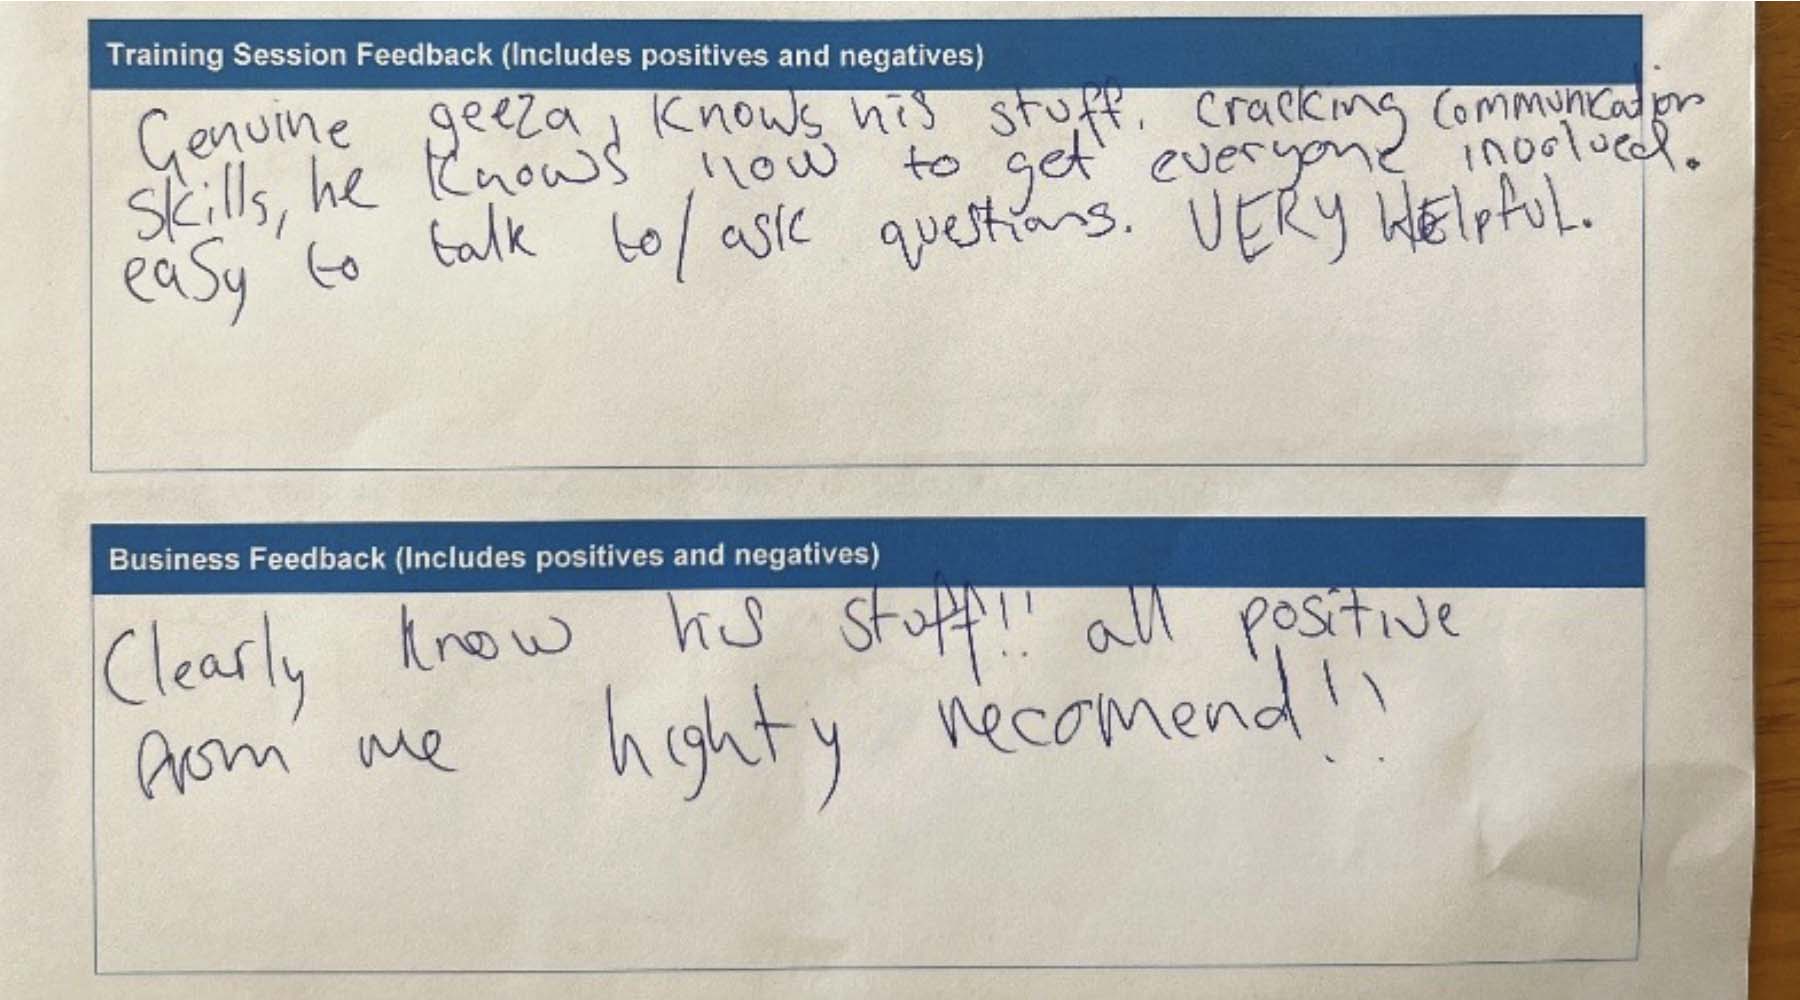 Training Session Feedback (Includes positives and negatives)
Genuine geeza, knows his stuff. cracking communication
skills, he knows how to get everyone inoolved.
easy to talk to/ ask questions. VERY HElpfuL.
Business Feedback (Includes positives and negatives)
Clearly know his stuff!! all positive
from me highty recomend!!